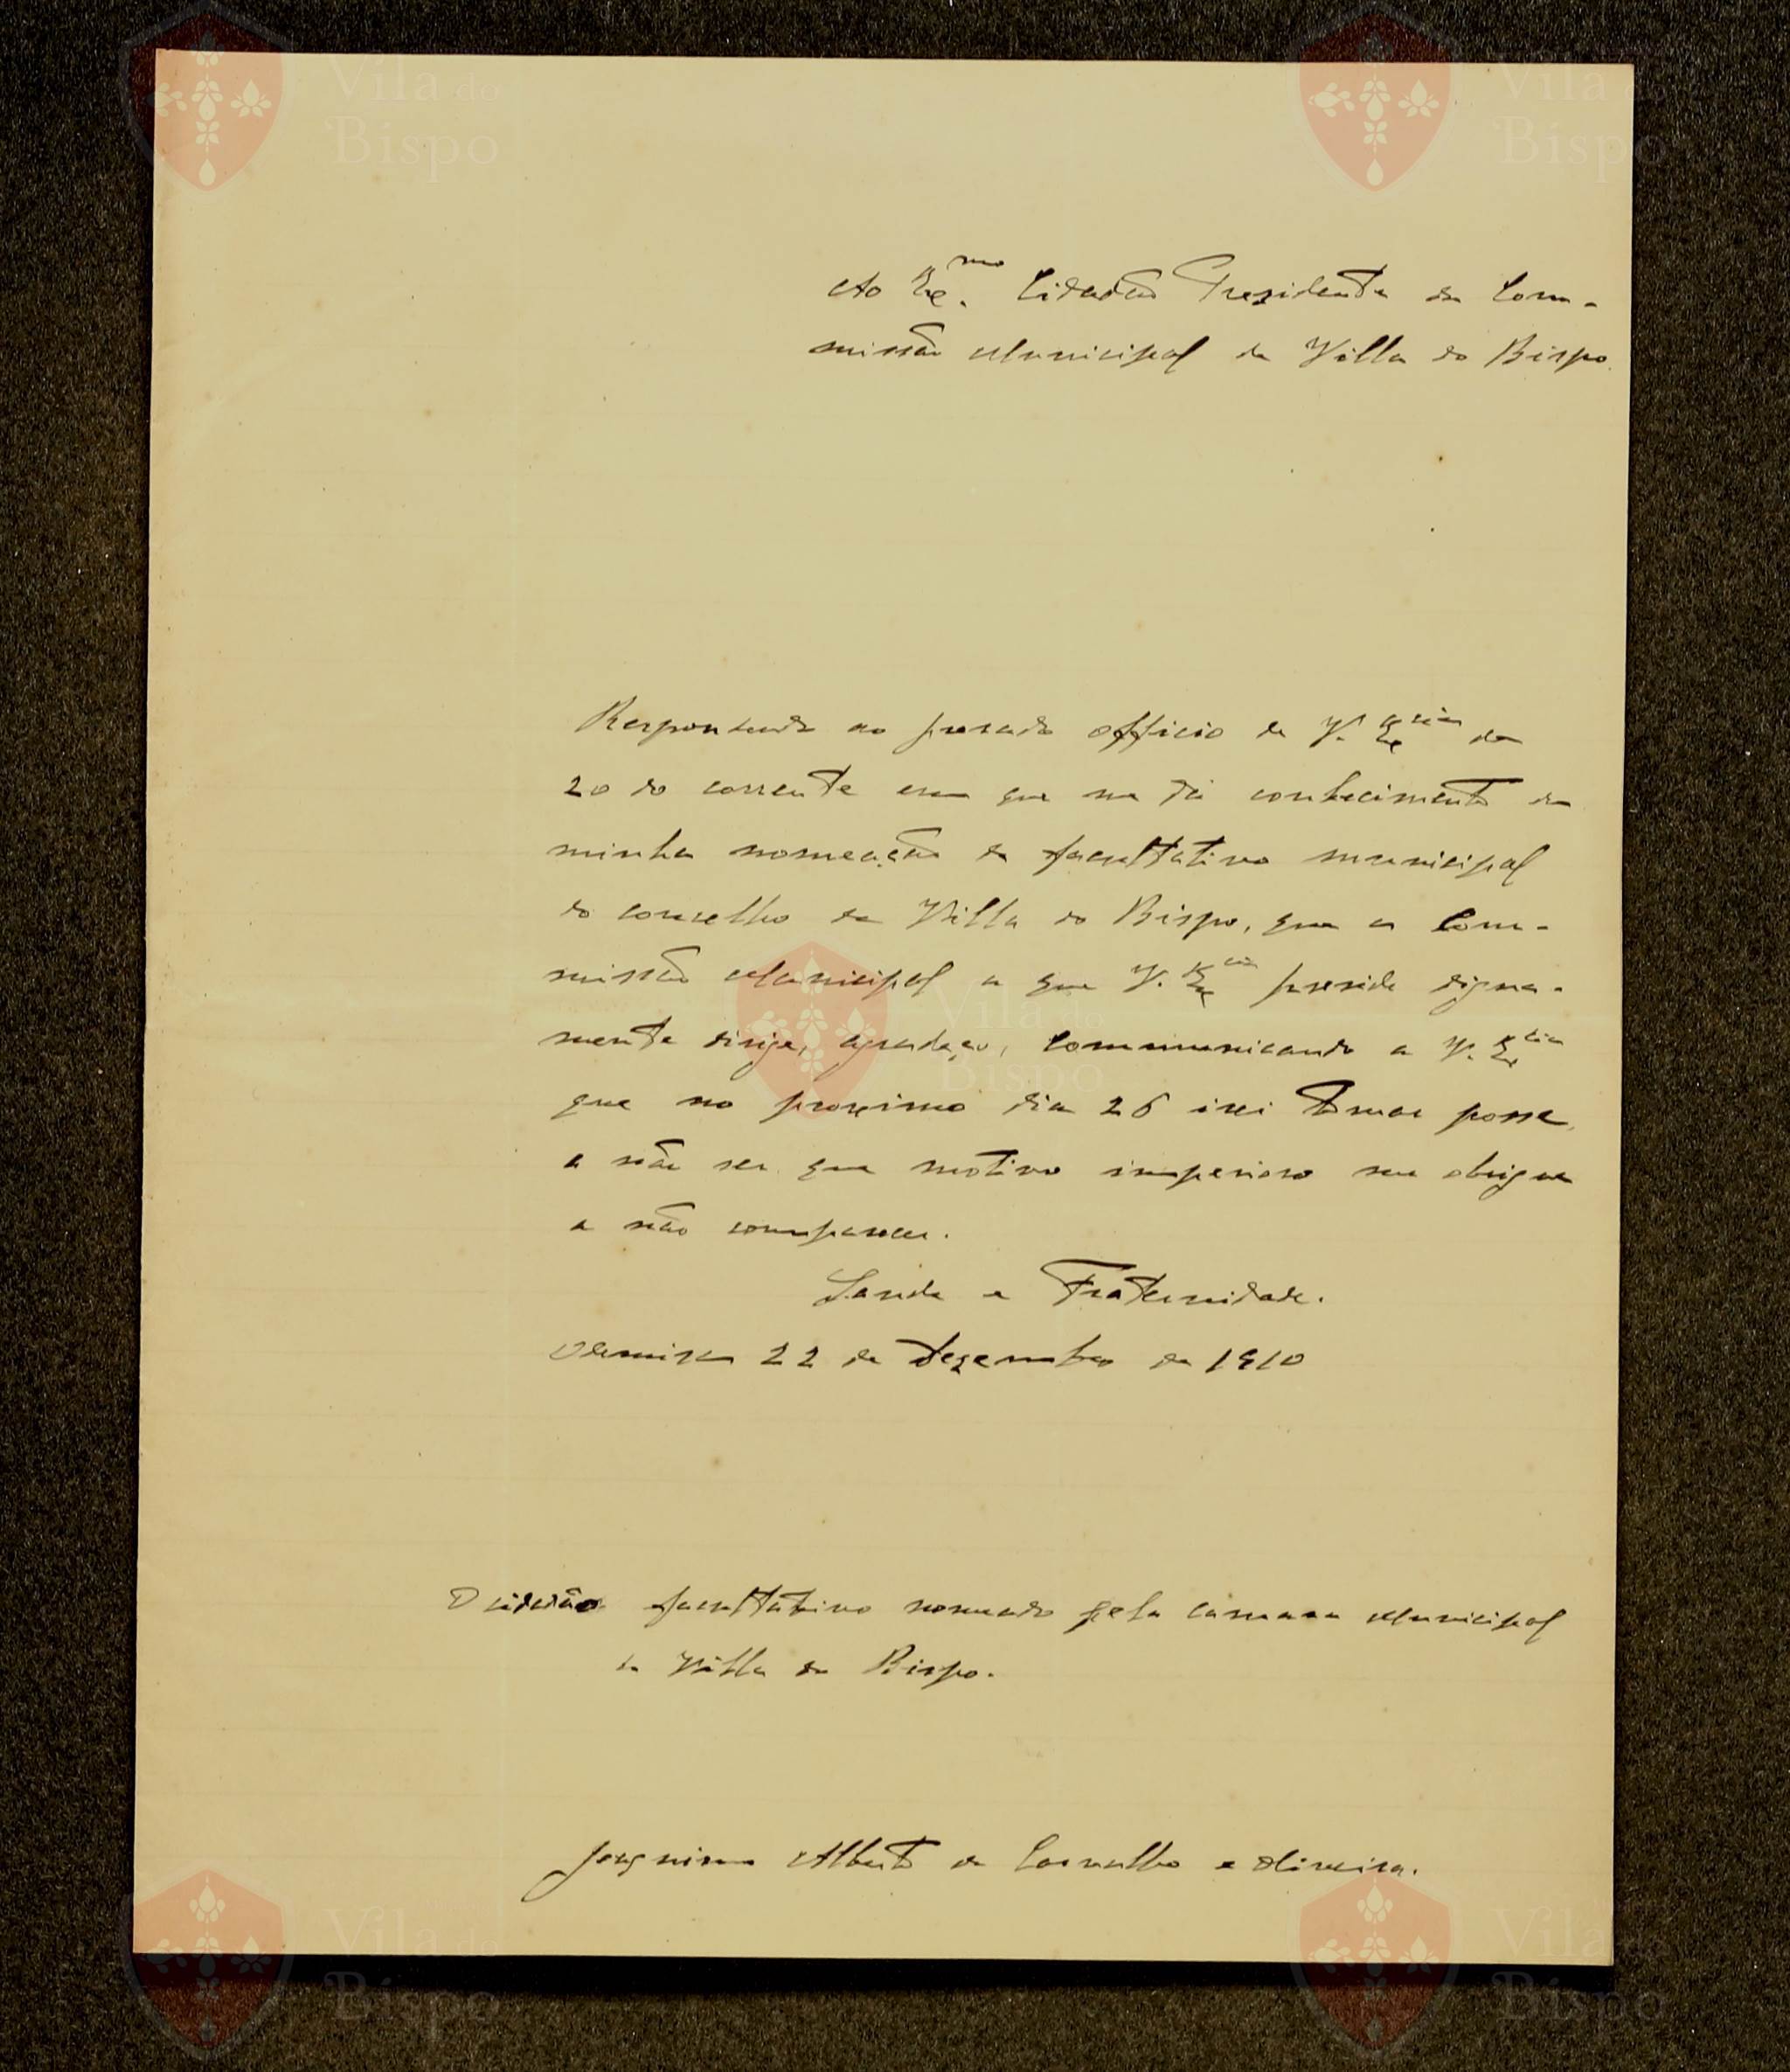 Ao Ex.mo Cidadão Presidente da Com-
missão Municipal de Villa do Bispo.
Respondendo ao presado officio de V. Excia de
20 do corrente em que me dá conhecimento da
minha nomeação de facultativo municipal
do concelho de Villa do Bispo, que a Com-
missão Municipal a que V. Excia preside digna-
mente dirige, agradeço, communicando a V. Excia
que no proximo dia 26 irei tomar posse,
a não ser que motivo imperioso me obrigue
a não comparecer.
Saude e Fraternidade.
22 de Dezembro de 1910
O cidadão facultativo nomeado pela camara Municipal
de Villa do Bispo.
Alberto de Carvalho e Oliveira.
Vila do
Bispo